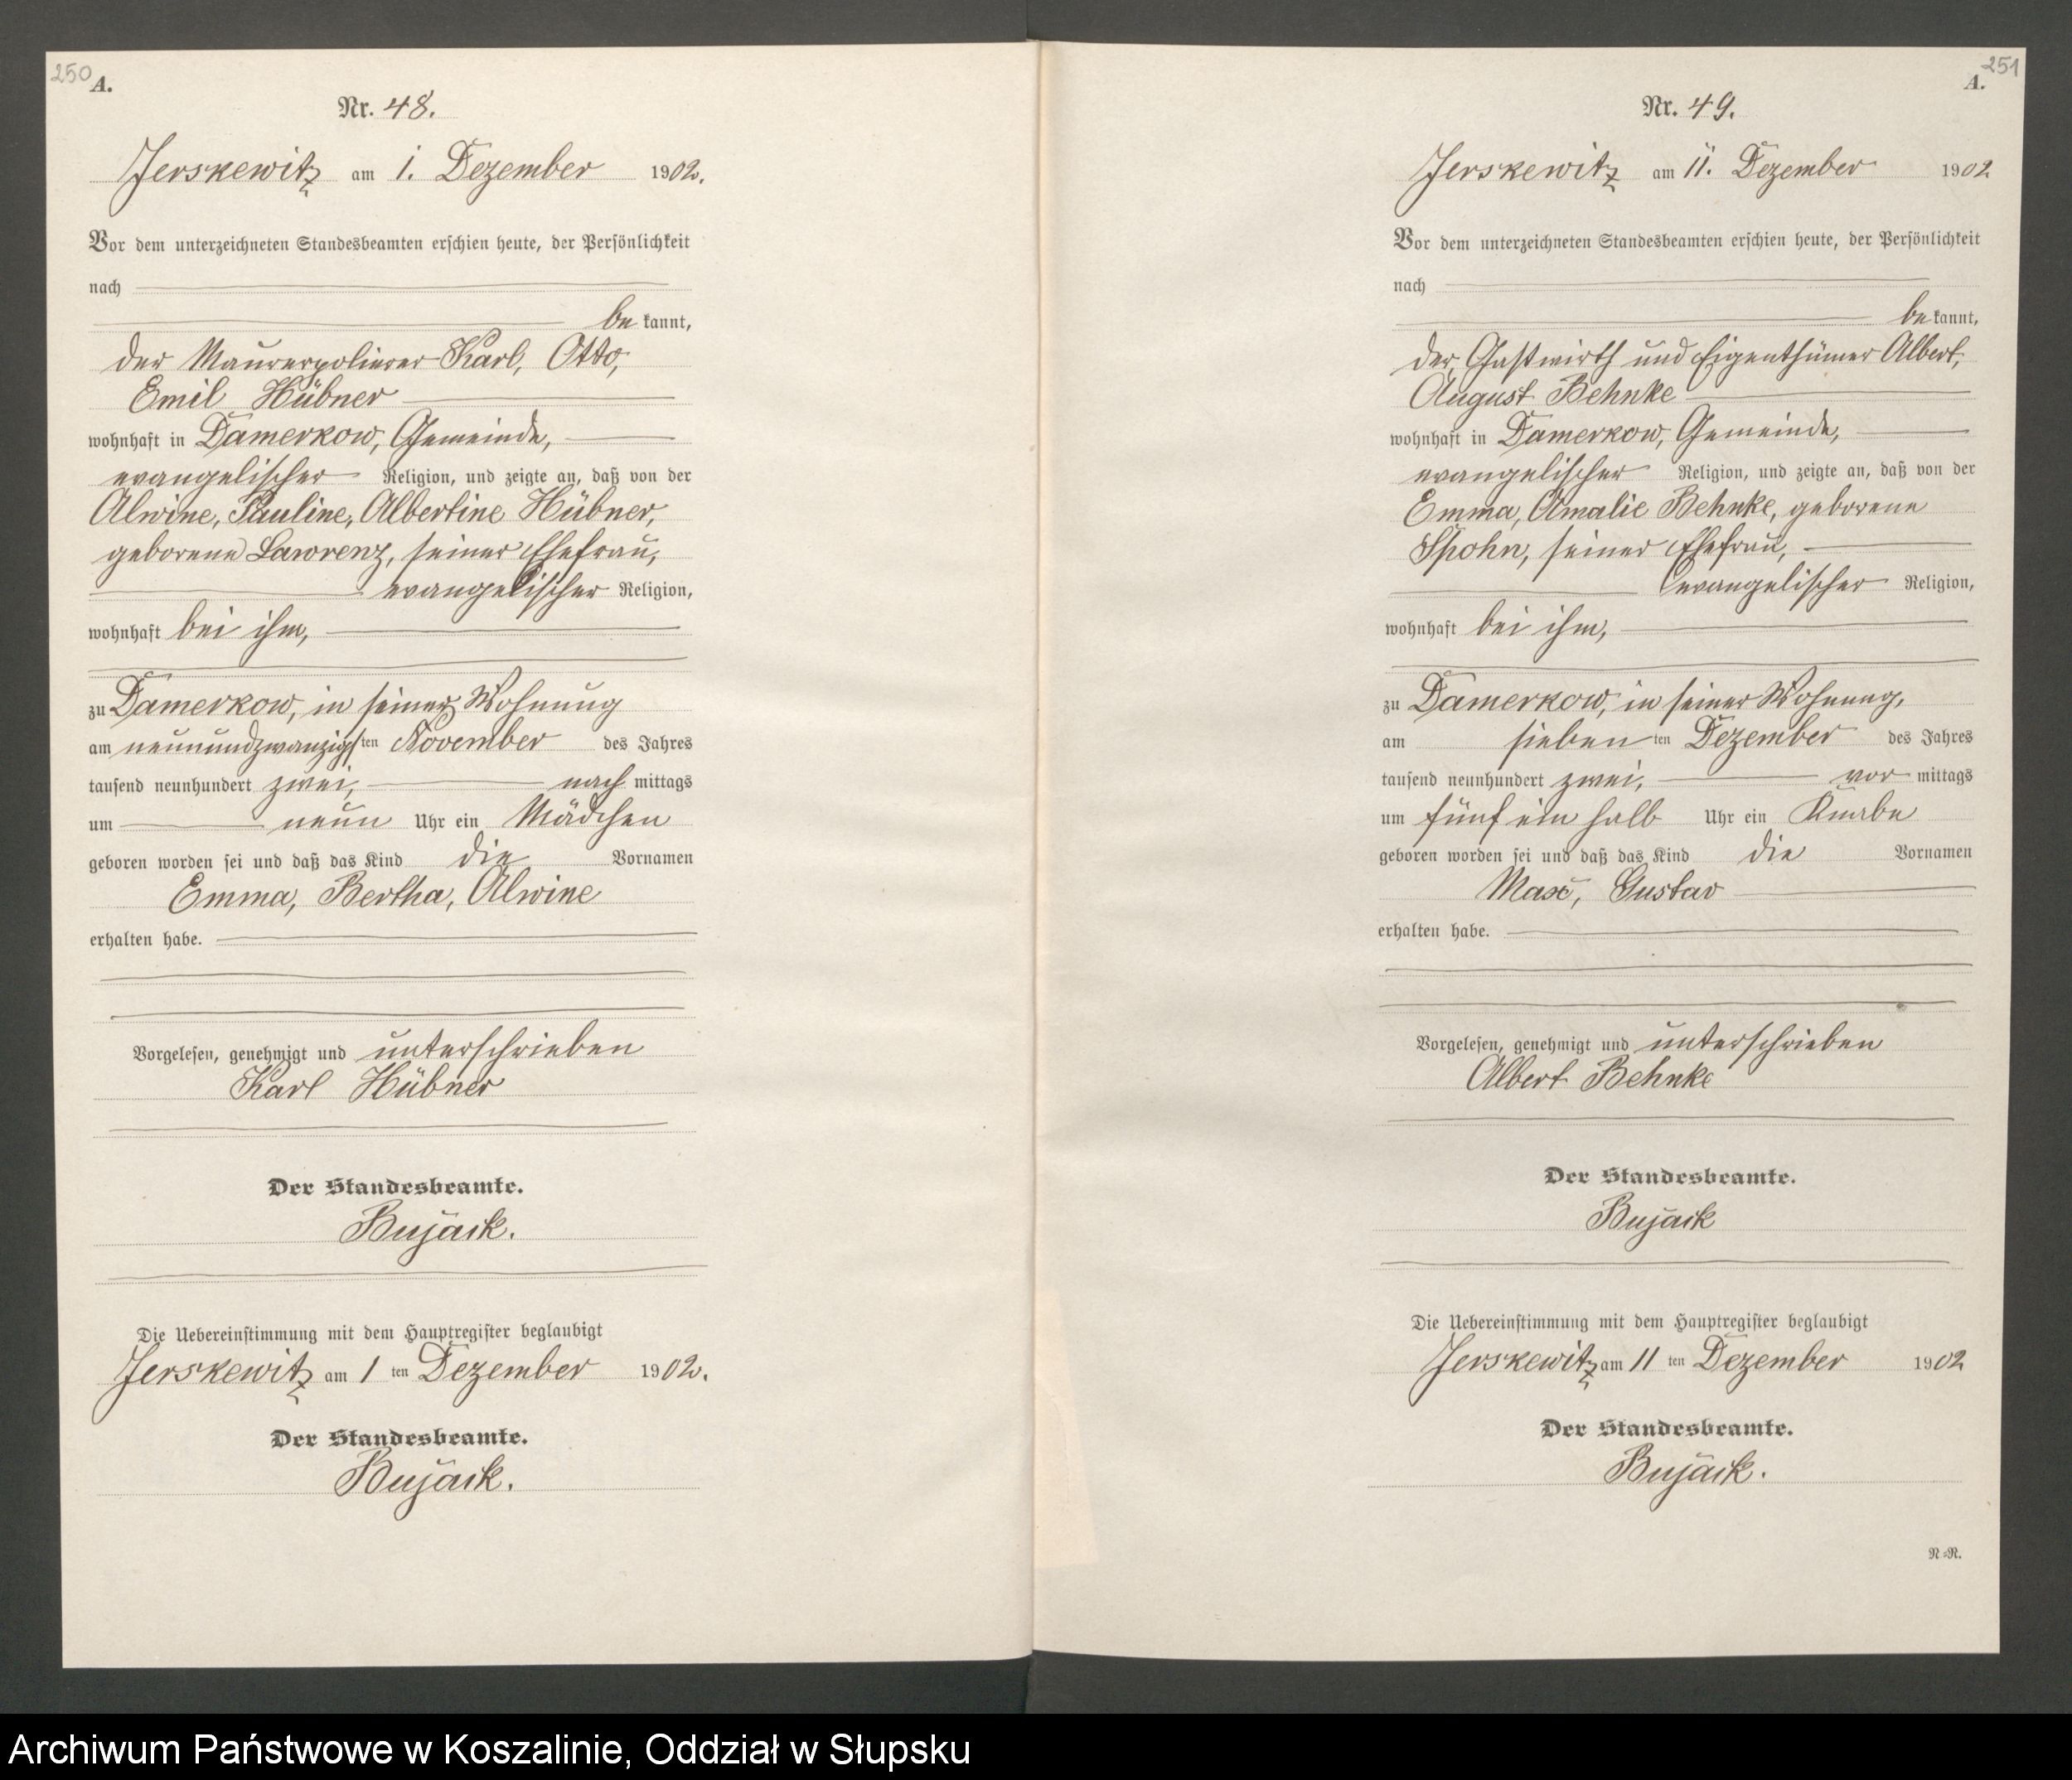 250 A.
Nr. 48.
Jerskewitz am 1. Dezember 1902.
Vor dem unterzeichneten Standesbeamten erschien heute, der Persönlichkeit
nach
bekannt,
der Maurerpolierer Karl, Otto,
Emil Hübner
wohnhaft in Damerkow, Gemeinde,
evangelischer Religion, und zeigte an, daß von der
Alwine, Pauline, Albertine Hübner,
geborene Lawrenz, seiner Ehefrau,
evangelischer Religion,
wohnhaft bei ihm,
zu Damerkow, in seiner Wohnung
am neunundzwanzigsten November des Jahres
tausend neunhundert zwei, nach mittags
um neun Uhr ein Mädchen
geboren worden sei und daß das Kind die Vornamen
Emma, Bertha, Alwine
erhalten habe.
Vorgelesen, genehmigt und unterschrieben
Karl Hübner
Der Standesbeamte.
Bujack.
Die Uebereinstimmung mit dem Hauptregister beglaubigt
Jerskewitz am 1 ten Dezember 1902.
Der Standesbeamte.
Bujack.
251
A.
Nr. 49.
Jerskewitz am 11. Dezember 1902
Vor dem unterzeichneten Standesbeamten erschien heute, der Persönlichkeit
nach
bekannt,
der Gastwirth und Eigenthümer Albert,
August Behnke
wohnhaft in Damerkow, Gemeinde,
evangelischer Religion, und zeigte an, daß von der
Emma, Amalie Behnke, geborene
Spohn, seiner Ehefrau,
evangelischer Religion,
wohnhaft bei ihm,
zu Damerkow, in seiner Wohnung,
am sieben ten Dezember des Jahres
tausend neunhundert zwei, vor mittags
um fünf ein halb Uhr ein Knabe
geboren worden sei und daß das Kind die Vornamen
Max, Gustav
erhalten habe.
Vorgelesen, genehmigt und unterschrieben
Albert Behnke
Der Standesbeamte.
Bujack
Die Uebereinstimmung mit dem Hauptregister beglaubigt
Jerskewitz am 11 ten Dezember 1902
Der Standesbeamte.
Bujack.
N=R.
Archiwum Państwowe w Koszalinie, Oddział w Słupsku